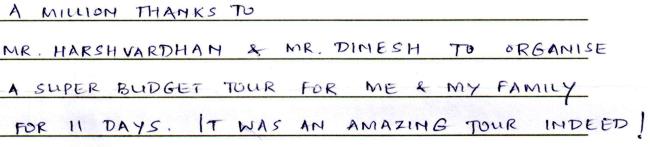 A MILLION THANKS TO
MR. HARSHVARDHAN & MR. DINESH TO ORGANISE
A SUPER BUDGET TOUR FOR ME & MY FAMILY
FOR 11 DAYS. IT WAS AN AMAZING TOUR INDEED!